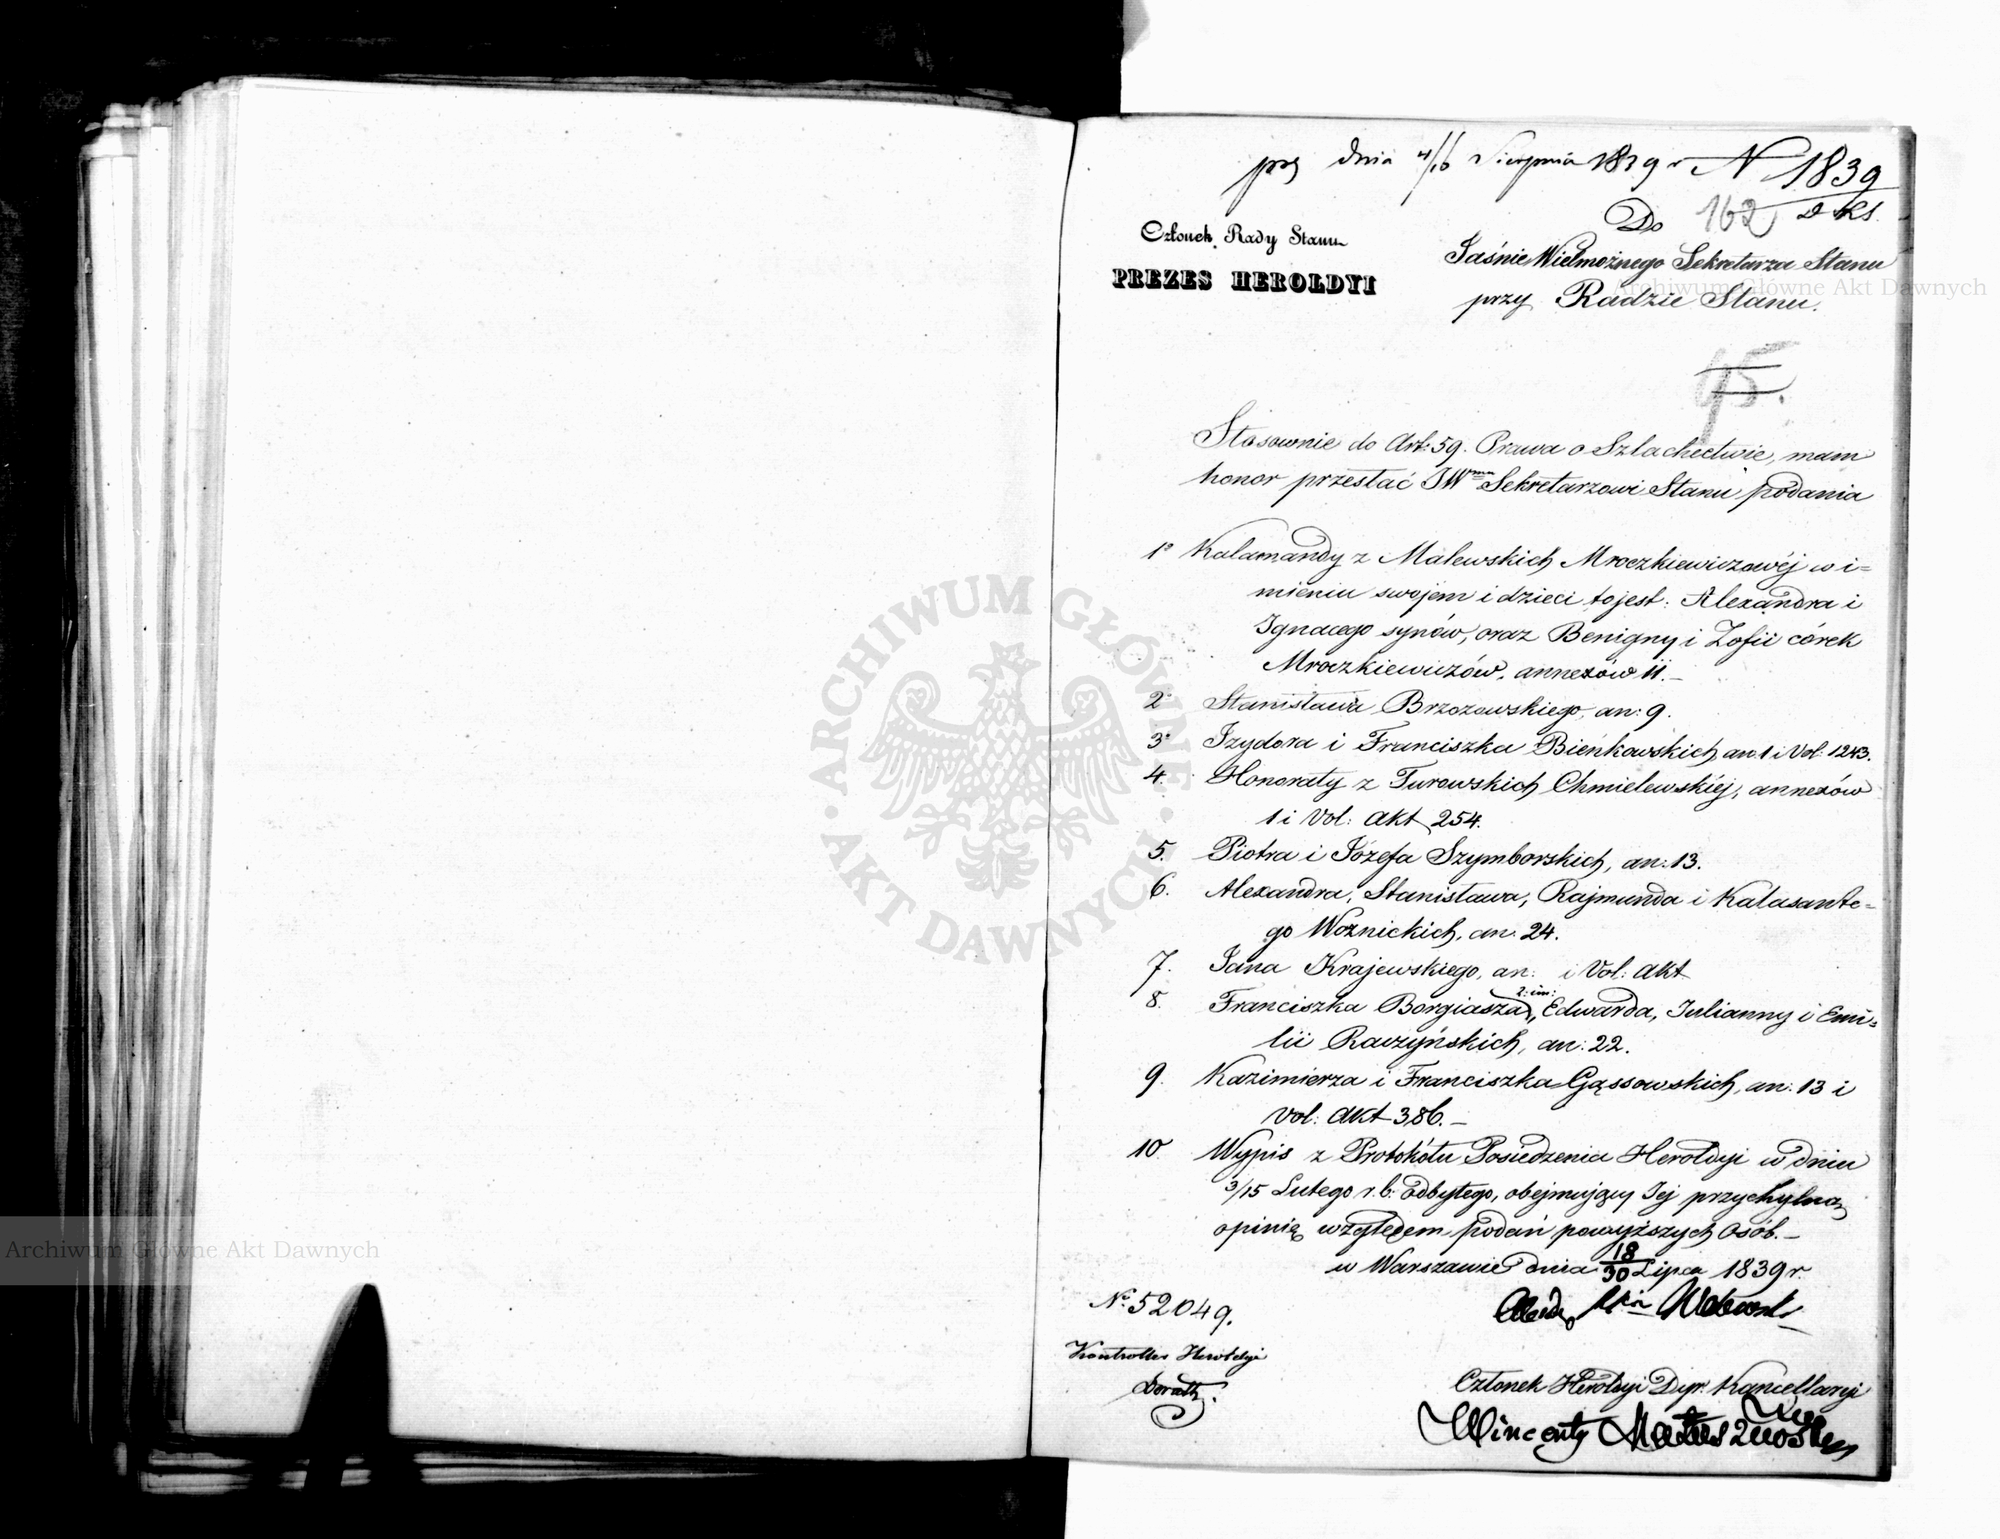 prez dnia 4/16 Sierpnia 1839 r N 1839
Do 162 D KS.
Członek Rady Stanu
PREZES HEROLDYI
Jaśnie Wielmożnego Sekretarza Stanu
przy Radzie Stanu.
95.
Stosownie do Art: 59. Prawa o Szlachectwie, mam
honor przesłać JWmu Sekretarzowi Stanu podania
1° Kalamandy z Malewskich Mroczkiewiczowéj w i=
mieniu swojem i dzieci to jest: Alexandra i
Ignacego synów, oraz Benigny i Zofii córek
Mroczkiewiczów, annexów 11.–
2° Stanisława Brzozowskiego, an: 9.
3° Izydora i Franciszka Bieńkowskich, an: 1 i Vol: 1243.
4. Honoraty z Turowskich Chmielewskiéj, annexów
1 i Vol: Akt 254.
5. Piotra i Józefa Szymborskich, an: 13.
6. Alexandra, Stanisława, Rajmunda i Kalasante=
go Woznickich, an: 24.
7. Jana Krajewskiego, an: i Vol: Akt
8. Franciszka Borgiasza 2: im:, Edwarda, Julianny i Emi=
lii Raczyńskich, an: 22.
9. Kazimierza i Franciszka Gąssowskich, an: 13 i
Vol: Akt 386.–
10 Wypis z Protokółu Posiedzenia Heroldyi w dniu
3/15 Lutego r. b: odbytego, obejmujący Jej przychylną
opinię względem podań powyższych osób.–
w Warszawie dnia 18/30 Lipca 1839 r.
No. 52049.
Kontroller Heroldyi
Członek Heroldyi Dyr: Kancellaryi
Wincenty
Archiwum Główne Akt Dawnych
Archiwum Główne Akt Dawnych
· ARCHIWUM GŁÓWNE · AKT DAWNYCH ·